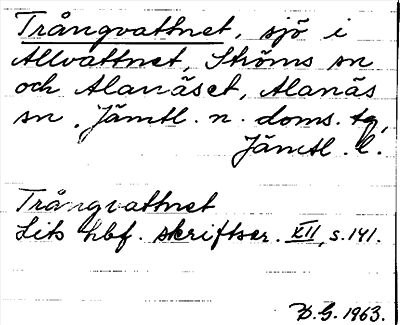 Trångvattnet, sjö i
Allvattnet, Ströms sn
och Alanäset, Alanäs
sn. Jämtl. n. doms. tg,
Jämtl. l.
Trångvattnet
Lits hbf. skriftser. XII, s. 141.
B. G. 1963.